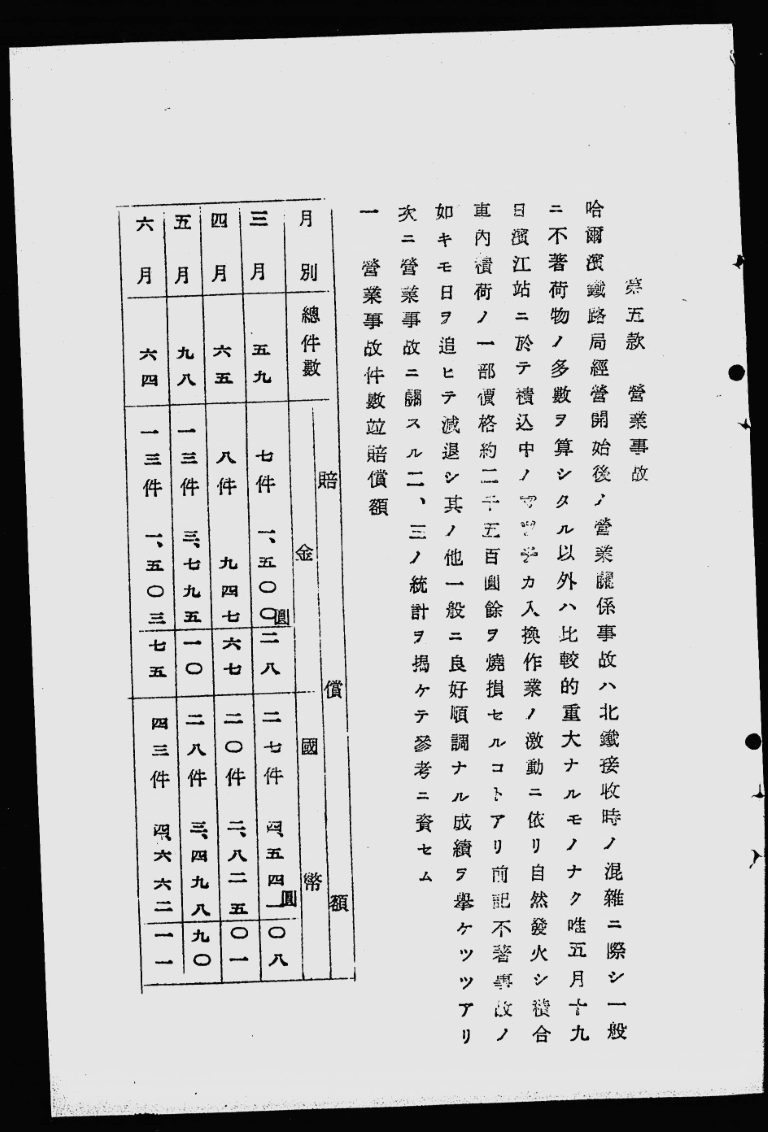 第五款　營業事故
哈爾濱鐵路局經營開始後ノ營業關係事故ハ北鐵接收時ノ混雜ニ際シ一般
ニ不著荷物ノ多數ヲ算シタル以外ハ比較的重大ナルモノナク唯五月十九
日濱江站ニ於テ積込中ノマツチカ入換作業ノ激動ニ依リ自然發火シ積合
車內積荷ノ一部價格約二千五百圓餘ヲ燒損セルコトアリ前記不著事故ノ
如キモ日ヲ追ヒテ減退シ其ノ他一般ニ良好順調ナル成績ヲ擧ケツツアリ
次ニ營業事故ニ關スル二、三ノ統計ヲ揭ケテ參考ニ資セム
一　營業事故件數竝賠償額
賠償額
月別　總件數　金　國幣
三月　五九　七件　一、五〇〇圓二八　二七件　四、五四一圓〇八
四月　六五　八件　九四七六七　二〇件　二、八二五〇一
五月　九八　一三件　三、七九五一〇　二八件　三、四九八九〇
六月　六四　一三件　一、五〇三七五　四三件　四、六六二一一